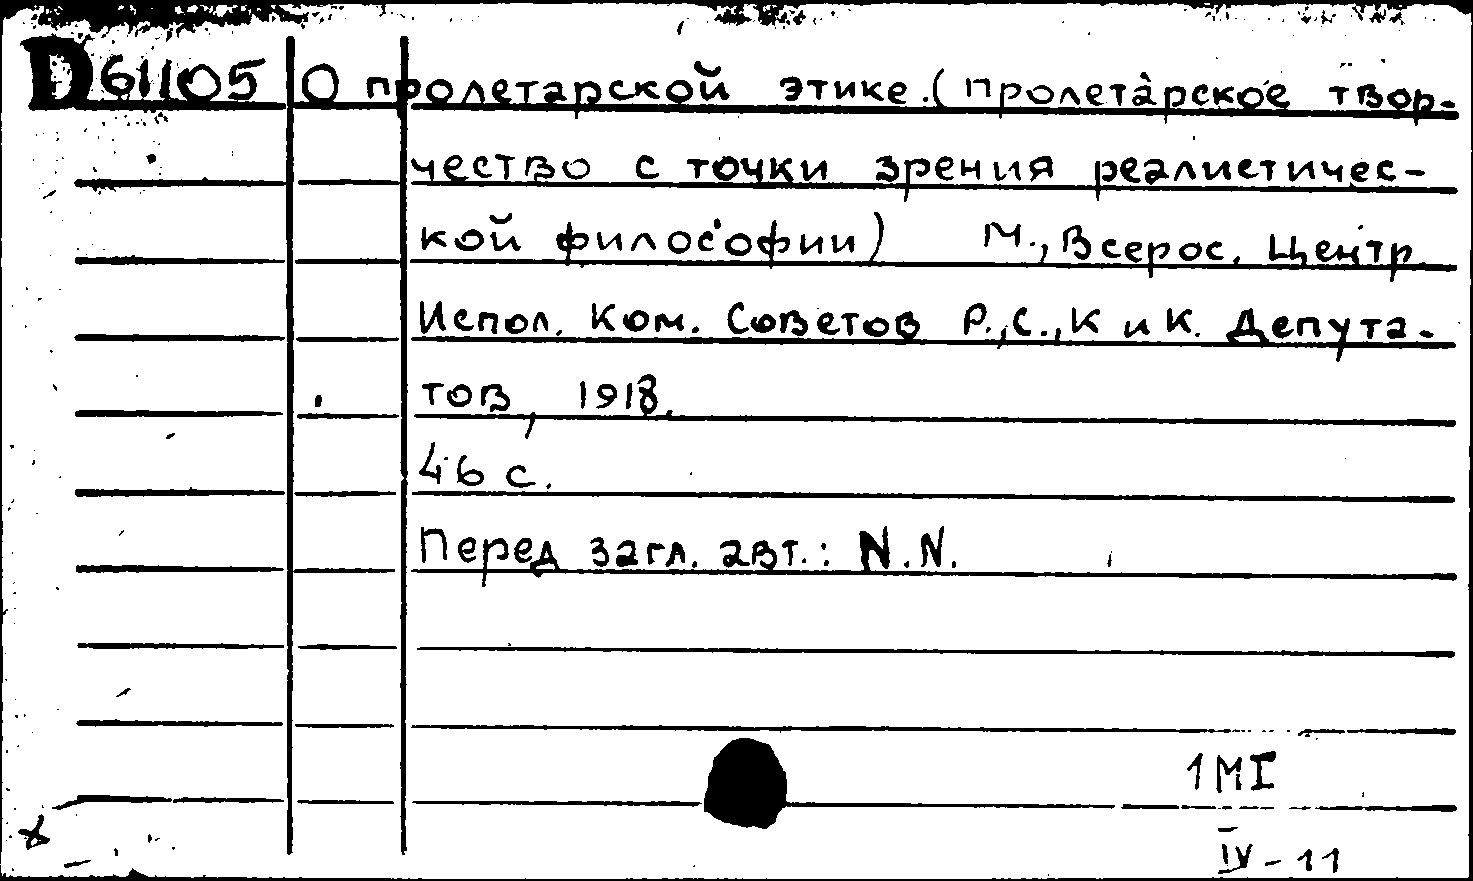 D 61105 О пролетарской этике. (пролетарское твор-
чество с точки зрения реалистичес-
кой философии) М., Всерос. Центр.
Испол. Ком. Советов Р., С., К и К. Депута-
тов, 1918.
46 с.
Перед загл. авт.: N.N.
1MI
IV-11